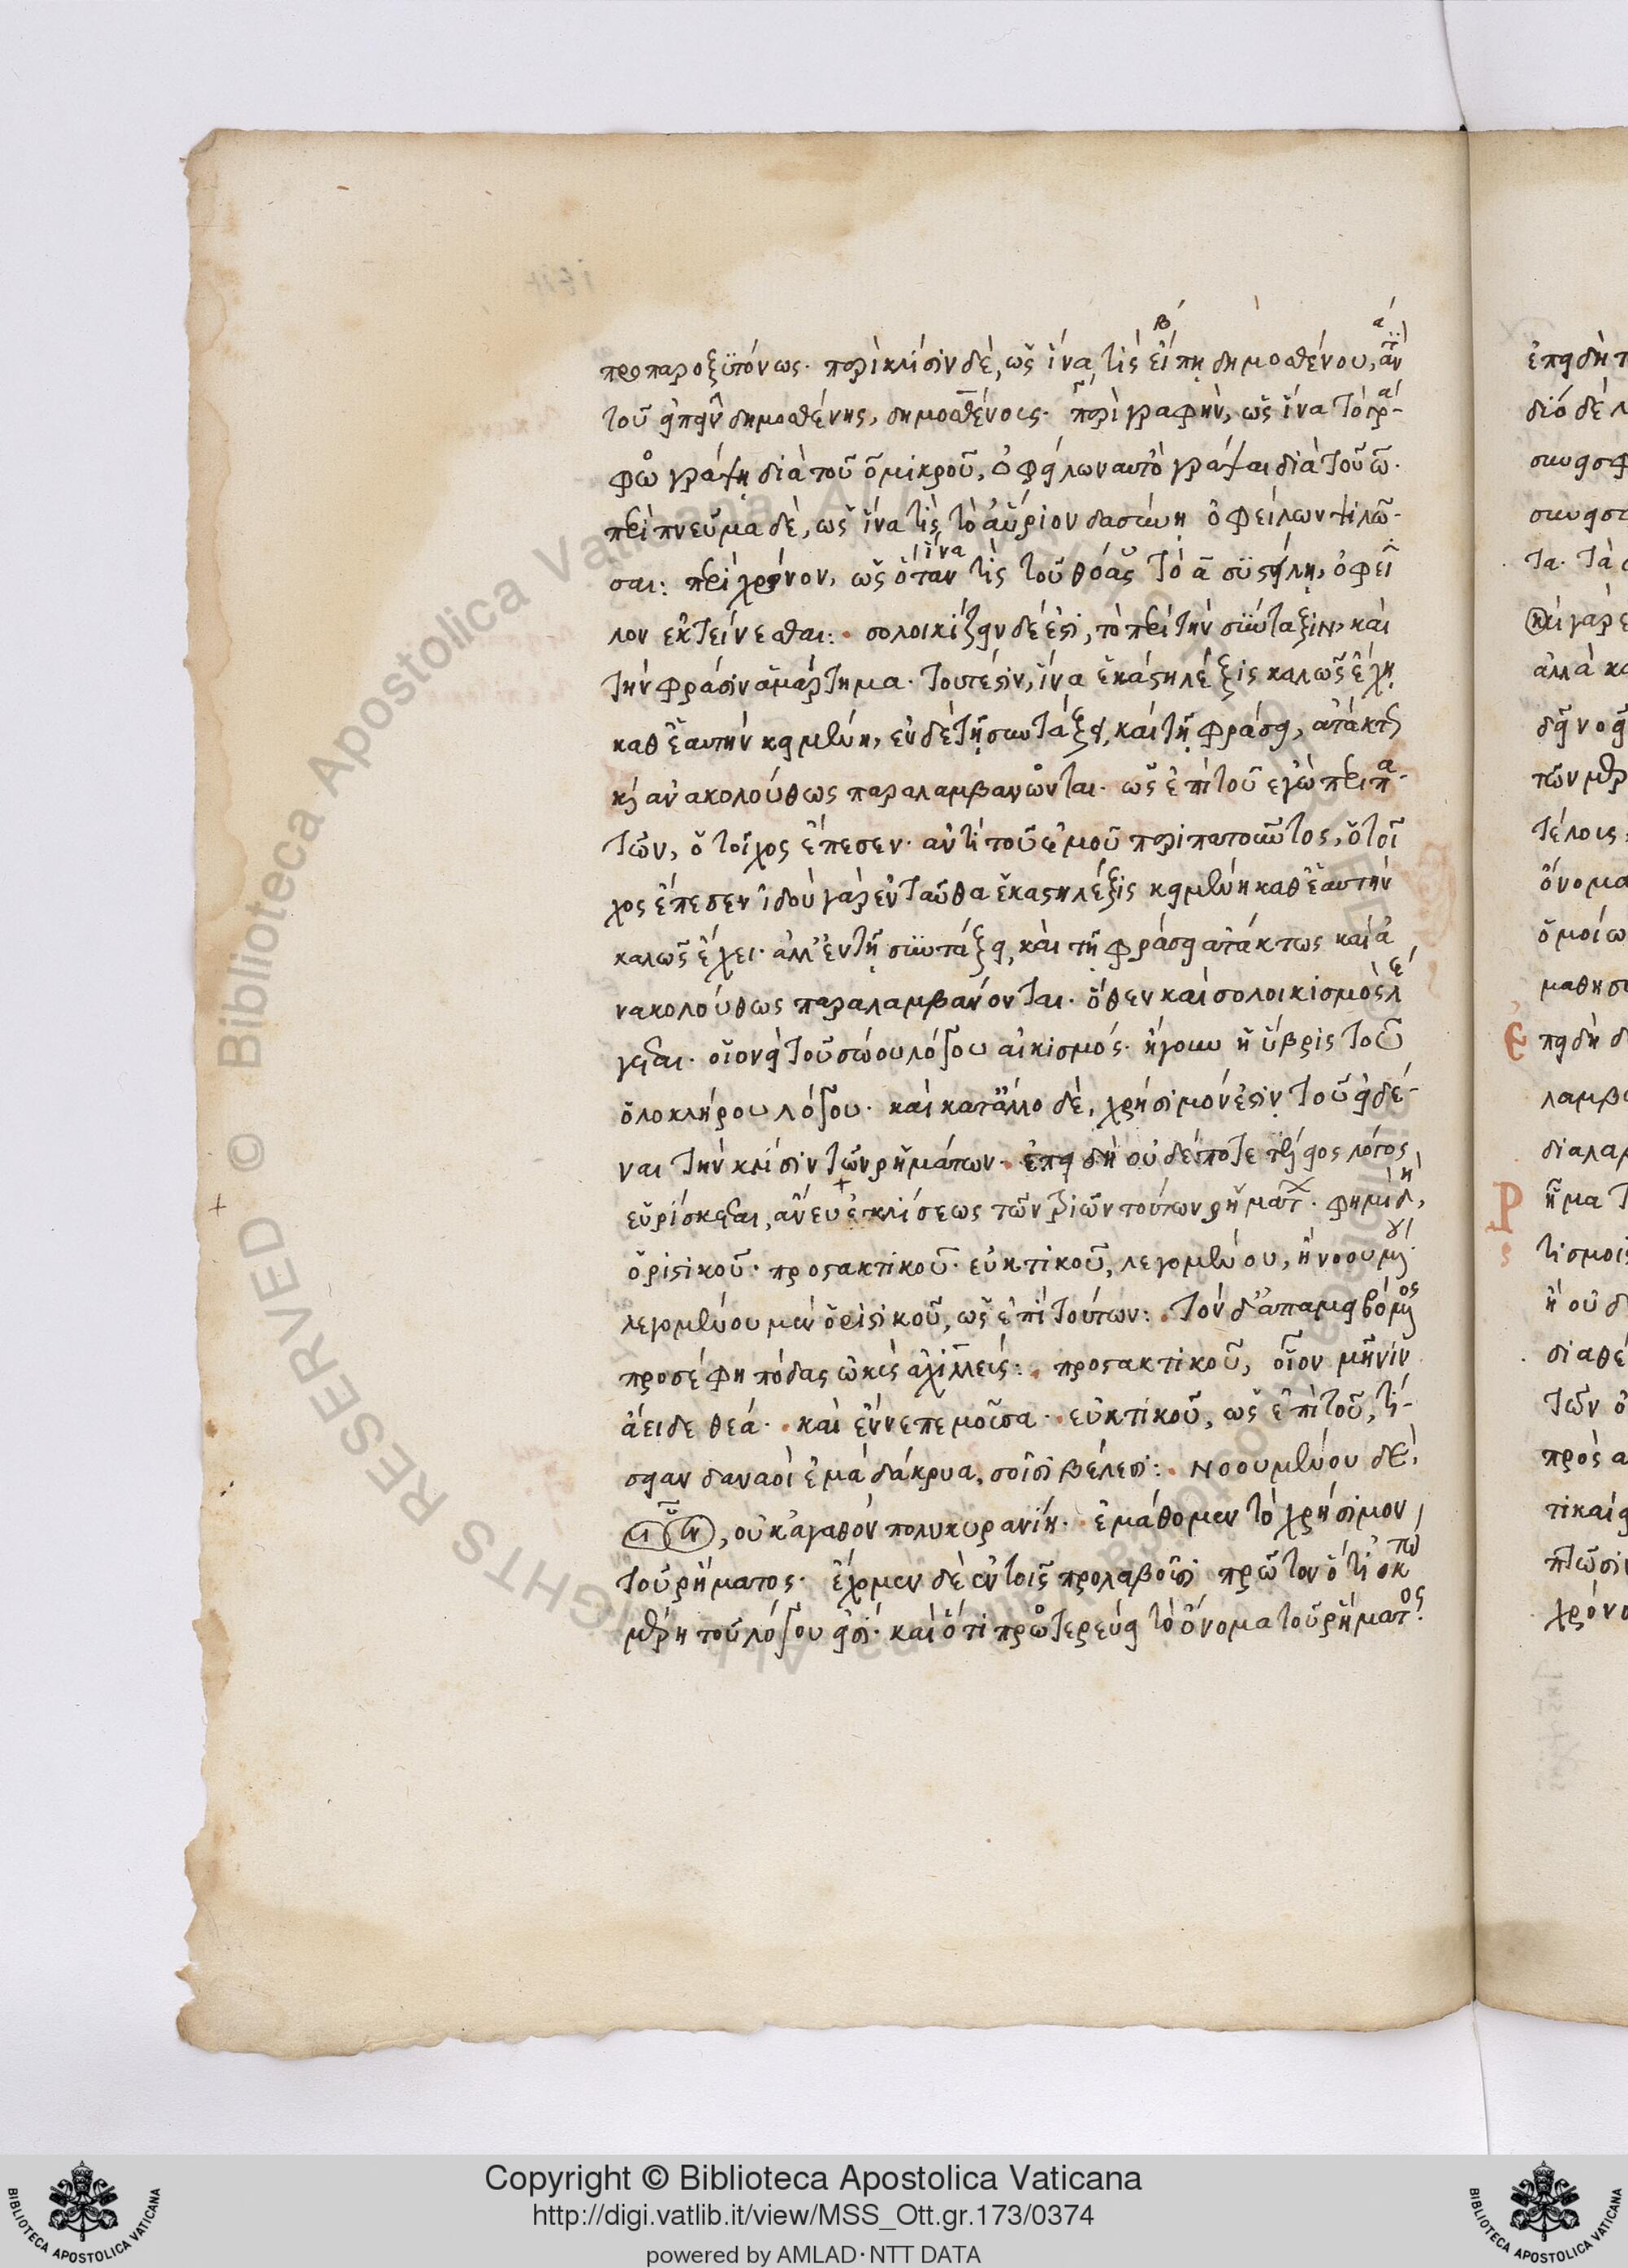 προπαροξϋτόνως· περὶ κλίσιν δὲ, ὡς ἵνα τὶς εἴπη δημοσθένου, ἀντὶ
τοῦ εἰπεῖν δημοσθένης, δημοσθένους· περὶ γραφὴν, ὡς ἵνα τὸ γρά-
φω γράψη διὰ τοῦ ὂ μικροῦ, ὀφείλων αὐτὸ γράψαι διὰ τοῦ ω̄·
περὶ πνεῦμα δὲ, ὡς ἵνα τὶς τὸ αὔριον δασύνη ὀφείλων ψιλῶ-
σαι: περὶ χρόνον, ὡς ὅταν ἵνα τὶς τοῦ θόας τὸ ᾱ συστείλη, ὀφεῖ
λον ἐκτείνεσθαι: · σολοικίζειν δέ ἐστι, τὸ περὶ τὴν σύνταξιν καὶ
τὴν φράσιν ἁμάρτημα· τουτέστιν, ἵνα ἑκάστη λέξις καλῶς ἔχη
καθ' ἑαυτὴν κειμένη, ἐν δὲ τῆ συντάξει, καὶ τῆ φράσει, ἀτάκτως
καὶ ἀνακολούθως παραλαμβανῶνται· ὡς ἐπὶ τοῦ ἐγὼ περιπα-
τῶν, ὁ τοῖχος ἔπεσεν· ἀντὶ τοῦ ἐμοῦ περιπατοῦντος, ὁ τοῖ
χος ἔπεσεν ἰδοὺ γὰρ ἐνταῦθα ἑκάστη λέξις κειμένη καθ' ἑαυτὴν
καλῶς ἔχει· ἀλλ' ἐν τῆ συντάξει, καὶ τῆ φράσει ἀτάκτως καὶ ἀ
νακολούθως παραλαμβάνονται· ὅθεν καὶ σολοικισμὸς λέ
γεται· οἱονεὶ τοῦ σώου λόγου αἰκισμός· ἤγουν ἡ ὕβρις τοῦ
ὁλοκλήρου λόγου· καὶ κατ' ἄλλο δὲ, χρήσιμόν ἐστιν τοῦ εἰδέ-
ναι τὴν κλίσιν τῶν ρημάτων· ἐπειδὴ οὐδέποτε τέλειος λόγος
εὑρίσκεται, ἄνευ ἐκκλίσεως τῶν τριῶν τούτων ρημάτων· φημὶ δὴ,
ὁριστικοῦ· προστακτικοῦ· εὐκτικοῦ, λεγομένου, ἢ νοουμένου·
λεγομένου μὲν ὁριστικοῦ, ὡς ἐπὶ τούτων: · τὸν δ' ἀπαμειβόμενος
προσέφη πόδας ὠκὺς ἀχιλλεύς: · προστακτικοῦ, οἷον μῆνιν
ἄειδε θεά· · καὶ ἔννεπε μοῦσα· · εὐκτικοῦ, ὡς ἐπὶ τοῦ, τί-
σειαν δαναοὶ ἐμὰ δάκρυα, σοῖσι βέλεσι: · νοουμένου δὲ,
οὐκ ἀγαθὸν πολυκοιρανίη· · ἐμάθομεν τὸ χρήσιμον
τοῦ ρήματος· ἔχομεν δὲ ἐν τοῖς προλαβοῦσι πρῶτον ὅτι ὀκτὼ
μέρη τοῦ λόγου εἰσί· καὶ ὅτι πρωτερεύει τὸ ὄνομα τοῦ ρήματος·
Copyright © Biblioteca Apostolica Vaticana
http://digi.vatlib.it/view/MSS_Ott.gr.173/0374
powered by AMLAD·NTT DATA